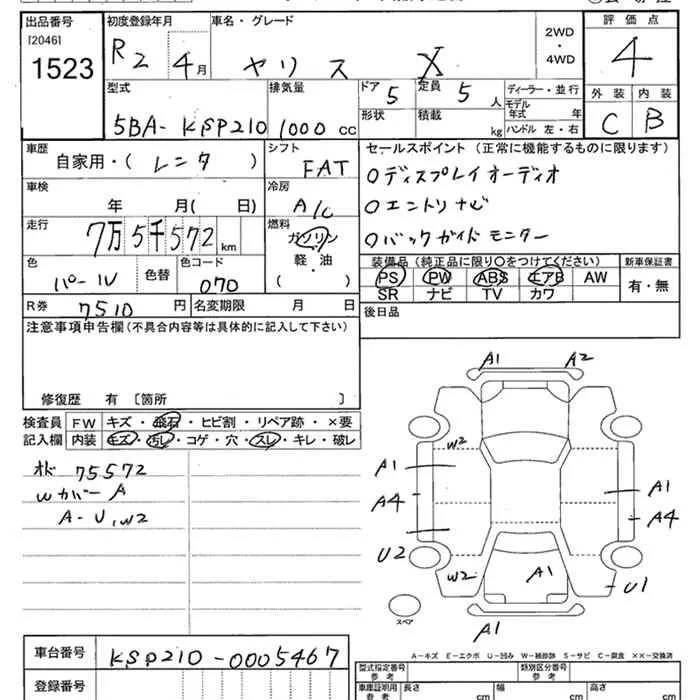 出品番号 初度登録年月 車名・グレード 2WD・4WD 評価点
[2046] 1523 R2 4月 ヤリス X 4
型式 排気量 ドア 5 定員 5 人 ディーラー・並行 外装 内装
5BA-KSP210 1000 cc 形状 積載 kg モデル年式 年 C B
ハンドル 左・右
車歴 シフト セールスポイント (正常に機能するものに限ります)
自家用・( レンタ ) FAT ○ディスプレイオーディオ
車検 冷房 ○エントリナビ
年 月( 日) A/C ○バックガイドモニター
走行 燃料
7万5千572km ガソリン・軽・油 ( )
色 色替 色コード 装備品 (純正品に限り○をつけてください) 新車保証書
パール 070 PS PW ABS エアB AW 有・無
SR ナビ TV カワ
R券 7510 円 名変期限 月 日 後日品
注意事項申告欄 (不具合内容等は具体的に記入して下さい)
修復歴 有 [箇所 ]
検査員 FW キズ・飛石・ヒビ割・リペア跡・×要
記入欄 内装 キズ・汚レ・コゲ・穴・スレ・キレ・破レ
オド 75572
Wカバー A
A-U,W2
A1 A2
W2
A1 A1
A4 A4
U2
W2 A1 U1
スペア
A1
A-キズ E-エクボ U-凹み W-補修跡 S-サビ C-腐食 ××-交換済
車台番号 KSP210-0005467
登録番号
型式指定番号 参考 類別区分番号 参考
車庫証明用 参考 長さ cm 幅 cm 高さ cm